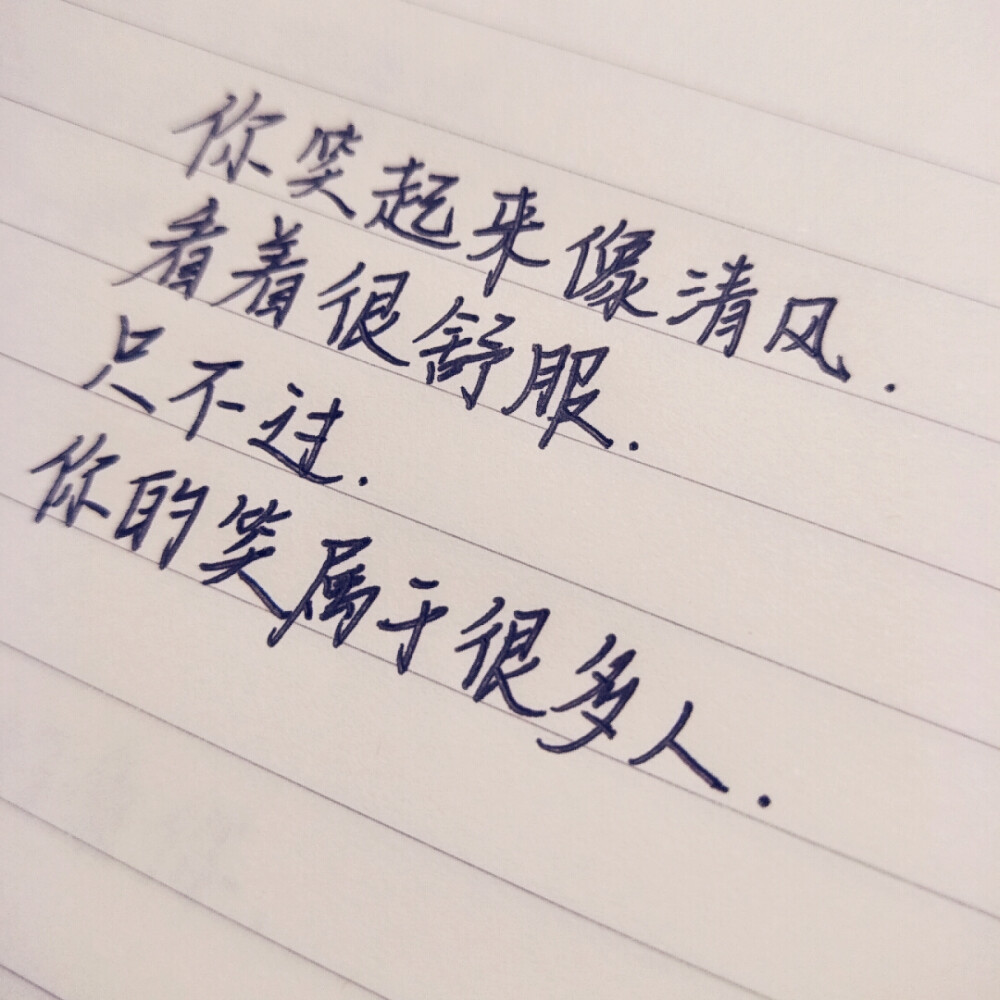 你笑起来像清风.
看着很舒服.
只不过.
你的笑属于很多人.